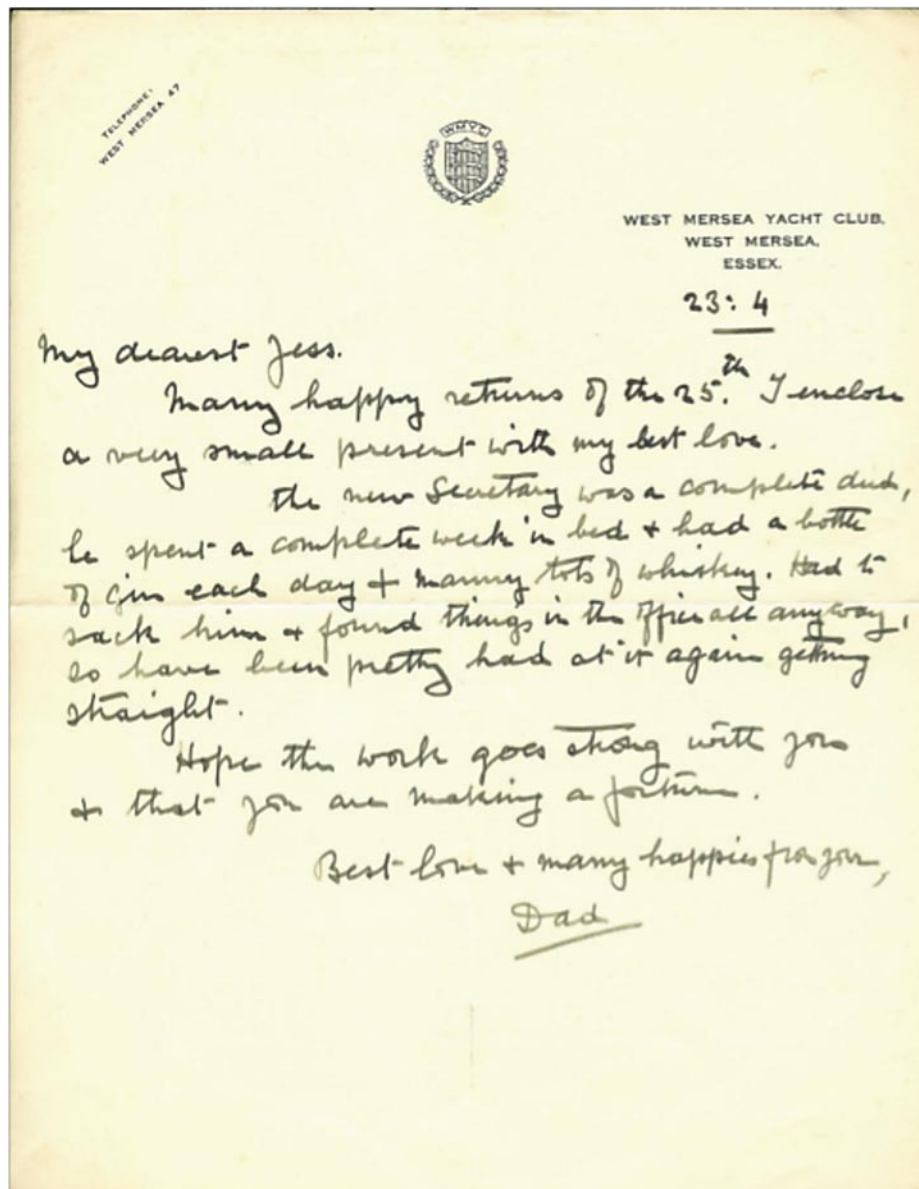 TELEPHONE:
WEST MERSEA 47
WMYC
WEST MERSEA YACHT CLUB,
WEST MERSEA,
ESSEX.
23: 4
My dearest Jess.
Many happy returns of the 25.th I enclose
a very small present with my best love.
The new Secretary was a complete dud,
he spent a complete week in bed & had a bottle
of gin each day & many tots of whiskey. Had to
sack him & found things in the office all anyway,
so have been pretty hard at it again getting
straight.
Hope the work goes strong with you
& that you are making a fortune.
Best love & many happies from your,
Dad